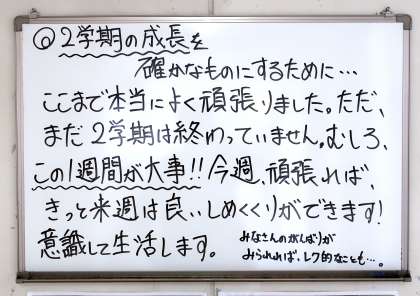 ◎2学期の成長を
確かなものにするために…
ここまで本当によく頑張りました。ただ、
まだ2学期は終わっていません。むしろ、
この1週間が大事!!今週、頑張れば、
きっと来週は良いしめくくりができます!
意識して生活します。
みなさんのがんばりが
みられれば、レク的なことも…。